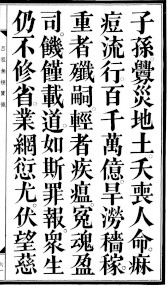 子孫釁災地土夭喪人命痳
痘流行百千萬億旱澇穡稼
重者殲嗣輕者疾瘟冤魂盈
司饑饉載道如斯罪報衆生
仍不修省業網衍尤伏望慈